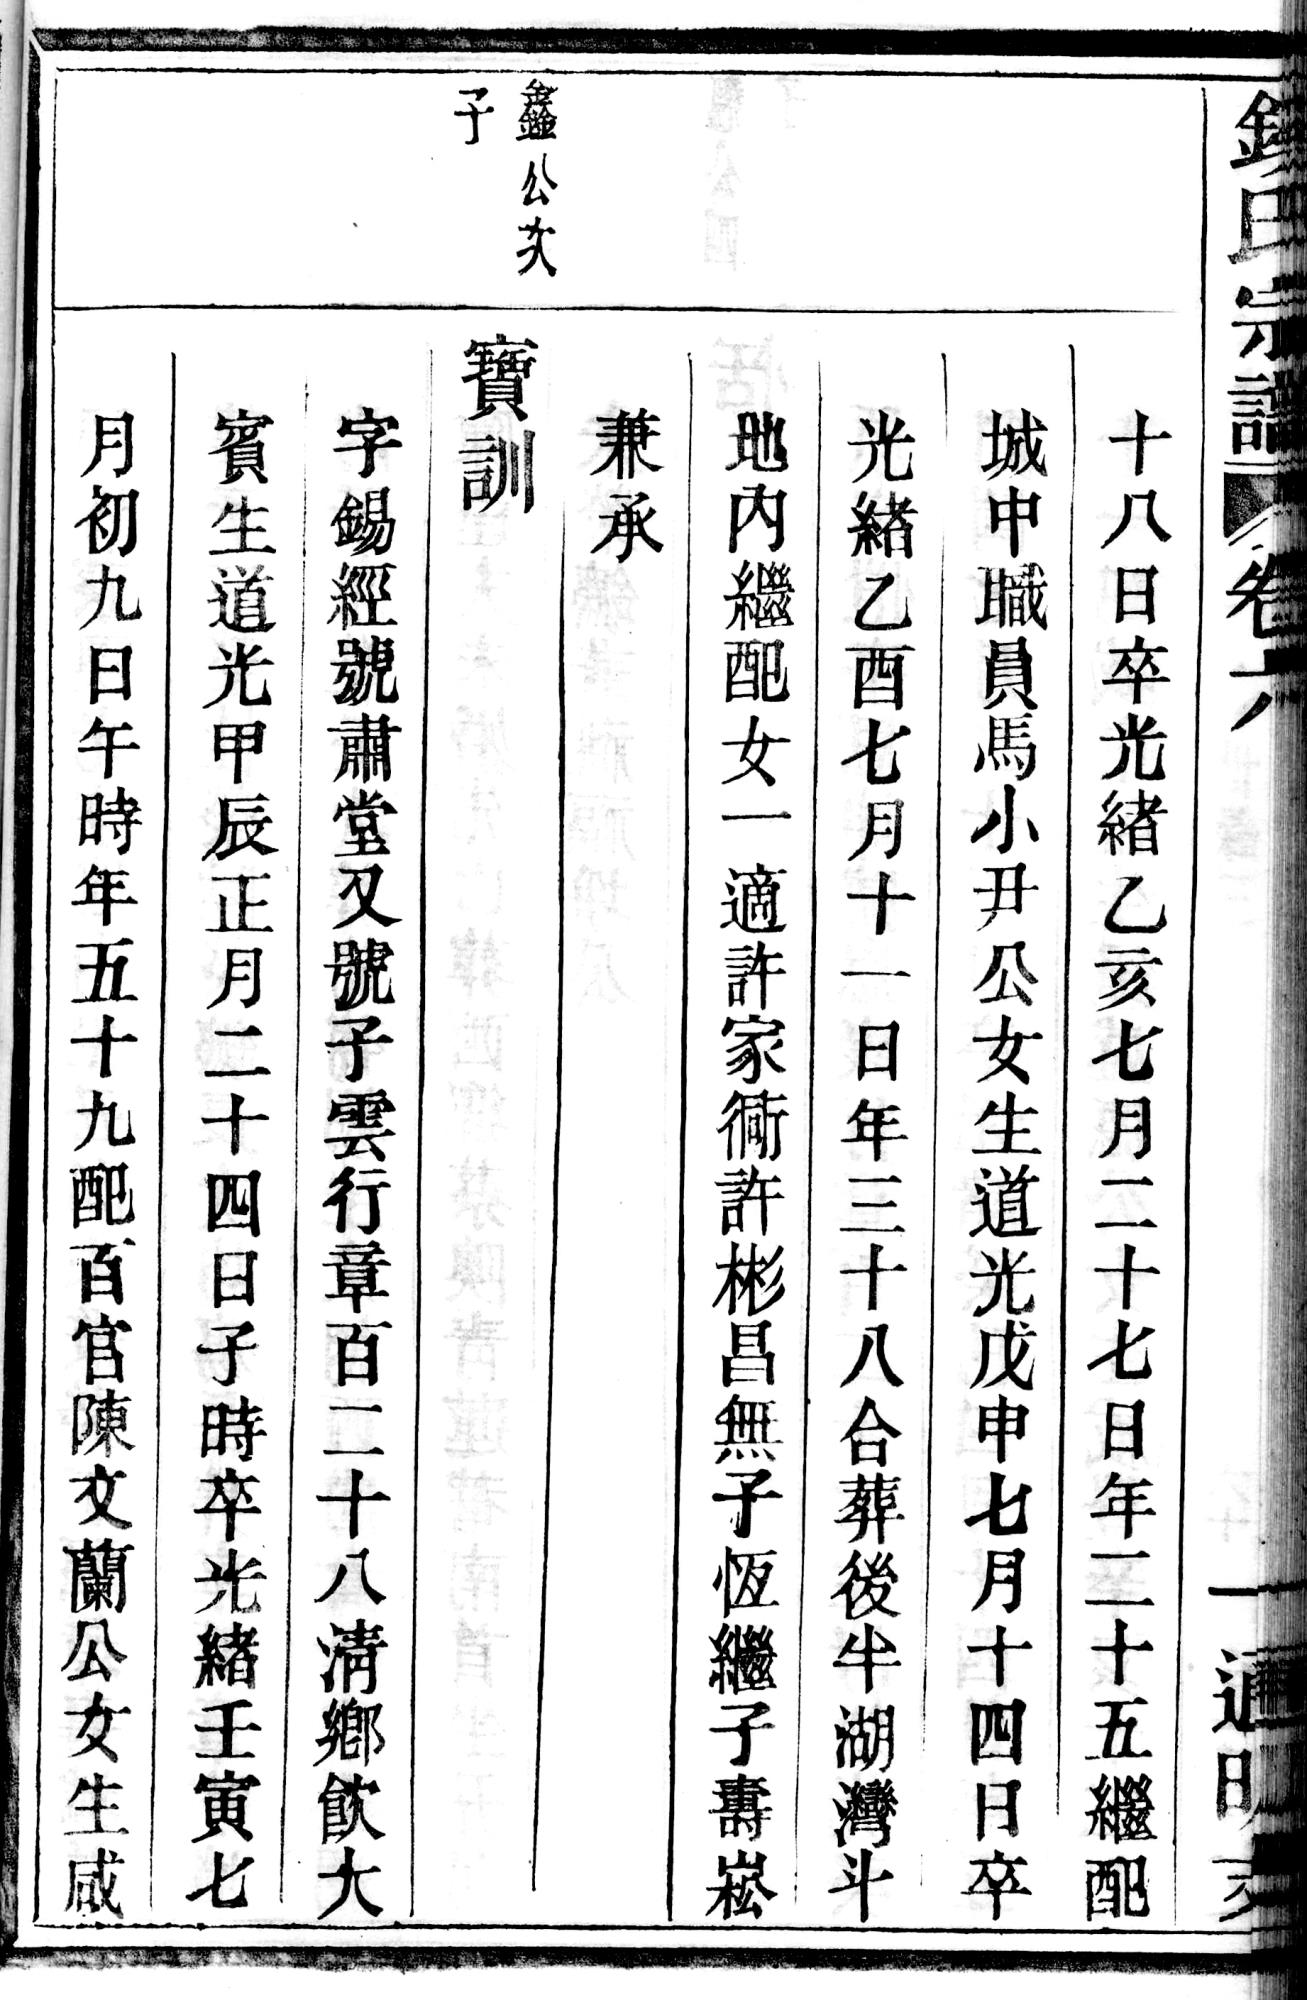 錢氏宗譜 卷六 一 通明支
十八日卒光緒乙亥七月二十七日年三十五繼配
城中職員馬小尹公女生道光戊申七月十四日卒
光緒乙酉七月十一日年三十八合葬後半湖灣斗
地內繼配女一適許家衕許彬昌無子恆繼子壽崧
兼承
鑫公次
子
寶訓
字錫經號肅堂又號子雲行章百二十八清鄉飲大
賓生道光甲辰正月二十四日子時卒光緒壬寅七
月初九日午時年五十九配百官陳文蘭公女生咸